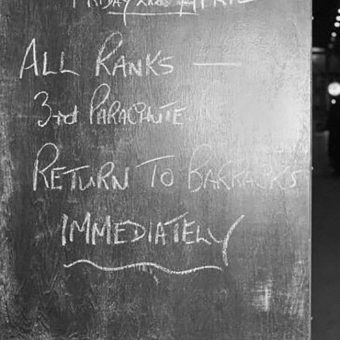 FRIDAY APRIL
ALL RANKS —
3rd PARACHUTE
RETURN TO BARRACKS
IMMEDIATELY